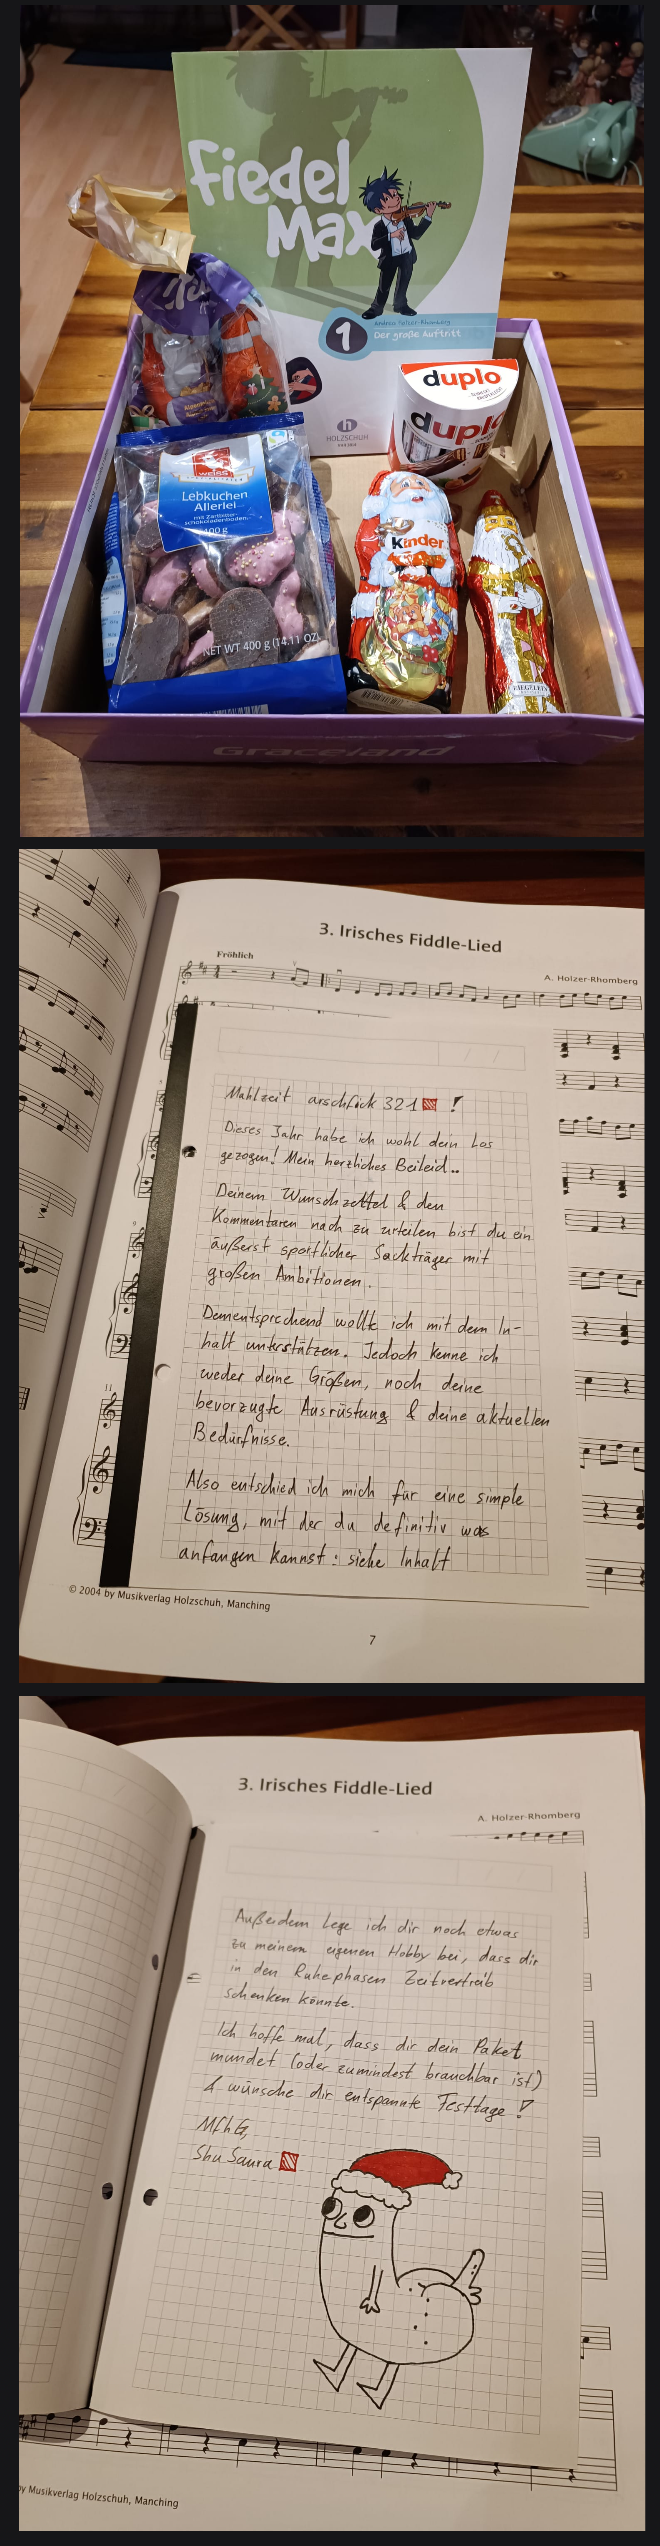 fiedel
Max
1
Andrea Holzer-Rhomberg
Der große Auftritt
HOLZSCHUH
duplo
duplo
WEISS
Lebkuchen
Allerlei
mit Zartbitter-
schokoladenboden
400 g
NET WT 400 g (14.11 OZ)
Kinder
RIEGELEIN
Graceland
3. Irisches Fiddle-Lied
Fröhlich
A. Holzer-Rhomberg
Mahlzeit arschfick321 !
Dieses Jahr habe ich wohl dein Los
gezogen! Mein herzliches Beileid..
Deinem Wunschzettel & den
Kommentaren nach zu urteilen bist du ein
äußerst sportlicher Sackträger mit
großen Ambitionen.
Dementsprechend wollte ich mit dem In-
halt unterstützen. Jedoch kenne ich
weder deine Größen, noch deine
bevorzugte Ausrüstung & deine aktuellen
Bedürfnisse.
Also entschied ich mich für eine simple
Lösung, mit der du definitiv was
anfangen kannst: siehe Inhalt
9
11
© 2004 by Musikverlag Holzschuh, Manching
7
3. Irisches Fiddle-Lied
A. Holzer-Rhomberg
Außerdem lege ich dir noch etwas
zu meinem eigenen Hobby bei, dass dir
in den Ruhephasen Zeitvertreib
schenken könnte.
Ich hoffe mal, dass dir dein Paket
mundet (oder zumindest brauchbar ist)
& wünsche dir entspannte Festtage!
MfhG,
Shu Saura
by Musikverlag Holzschuh, Manching